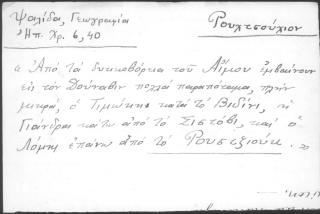 Ψαλίδα, Γεωγραφία
Ἠπ. Χρ. 6, 40
Ρουχτσούχιον
« Ἀπό τά δυτικοβόρεια τοῦ Αἵμου ἐμβαίνουν
εἰς τόν Δούναβιν πολλά παραπόταμα, πλήν
μικρά, ὁ Τιμώκης κατά τό Βιδίνι, ἡ
Γιάντρα κάτω ἀπό τό Σιστόβι, καί ὁ
Λόμης ἐπάνω ἀπό τό Ρουστζιούκ. »